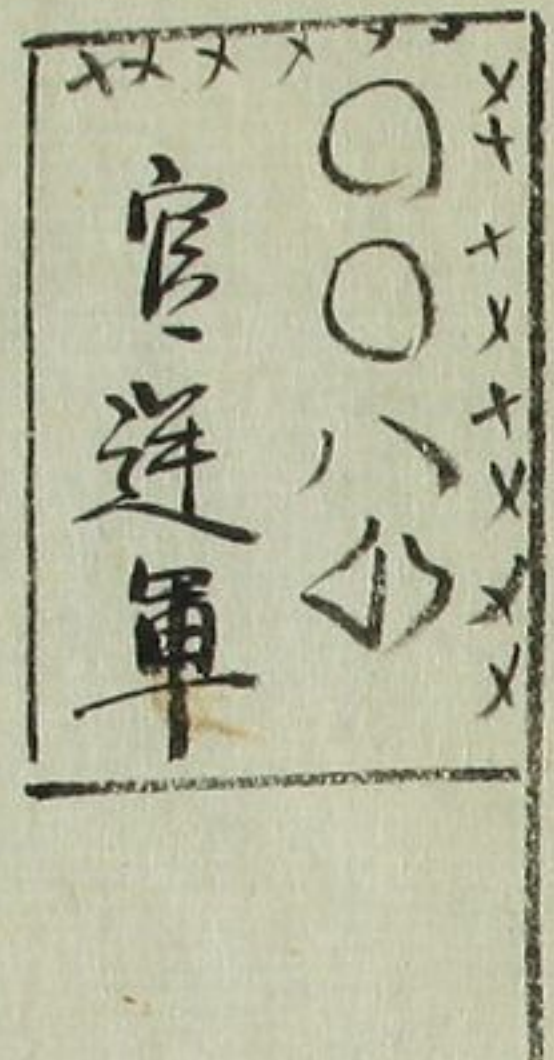 〇〇八
官逆軍